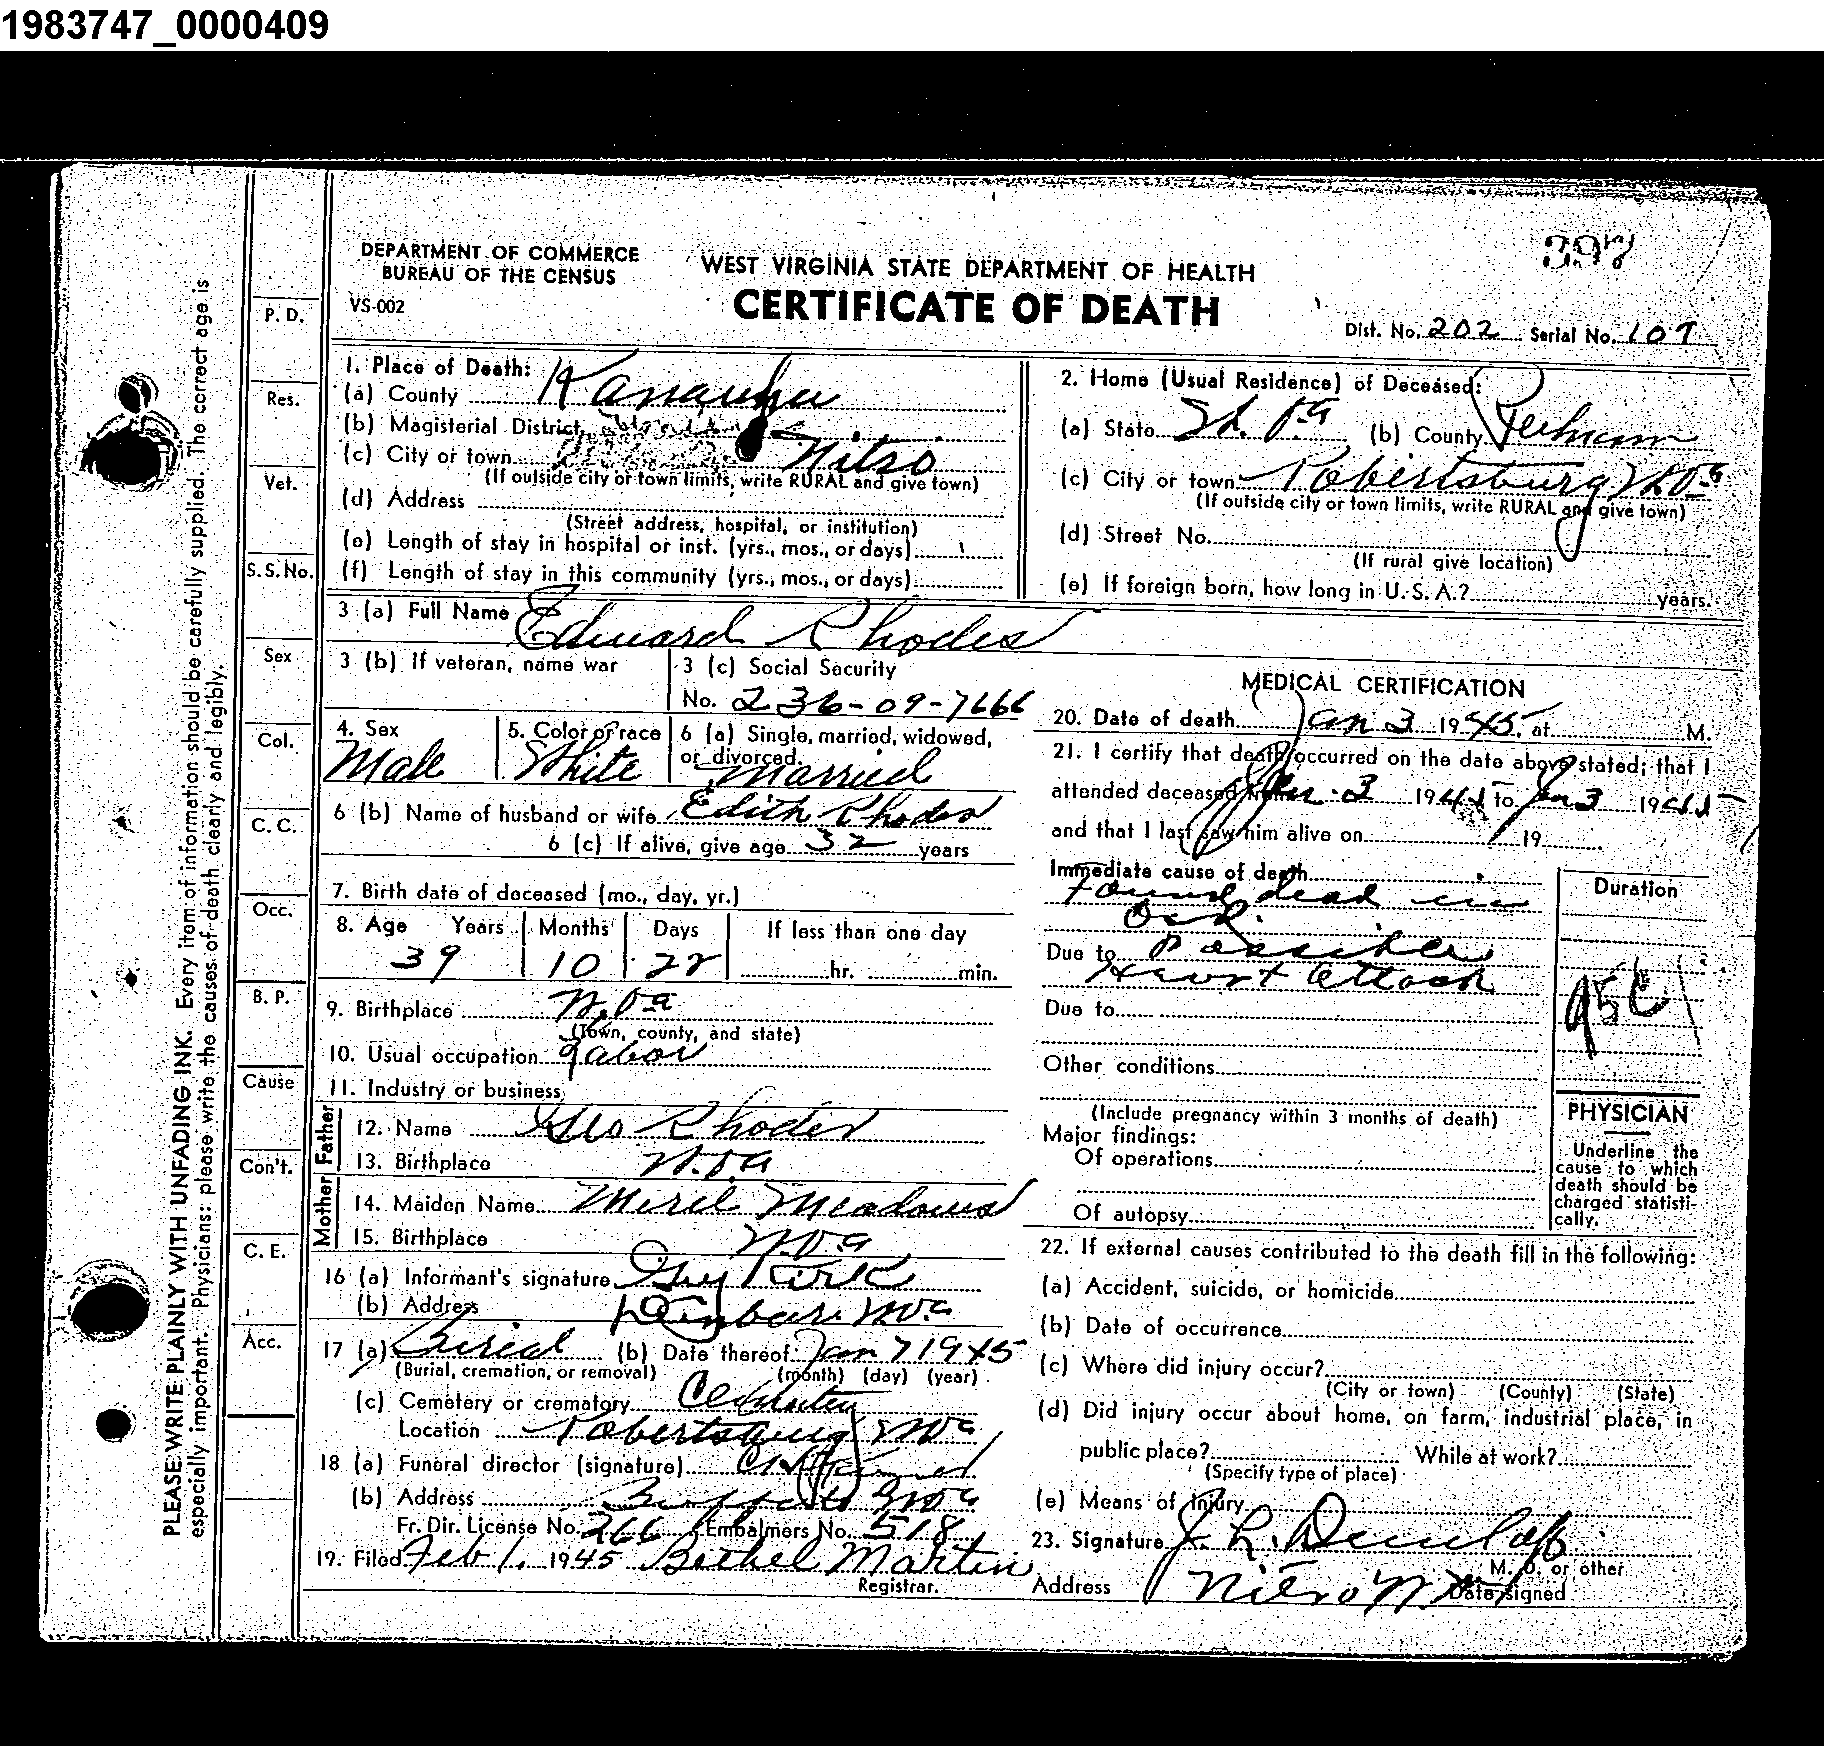 1983747_0000409
DEPARTMENT OF COMMERCE
BUREAU OF THE CENSUS
VS-002
WEST VIRGINIA STATE DEPARTMENT OF HEALTH
CERTIFICATE OF DEATH
Dist. No. 202 Serial No. 107
PLEASE WRITE PLAINLY WITH UNFADING INK. Every item of information should be carefully supplied. The correct age is
especially important. Physicians: please write the causes of death clearly and legibly.
P. D.
Res.
Vet.
S.S. No.
Sex
Col.
C. C.
Occ.
B. P.
Cause
Con't.
C. E.
Acc.
1. Place of Death:
(a) County Kanawha
(b) Magisterial District
(c) City or town Nitro
(If outside city or town limits, write RURAL and give town)
(d) Address
(Street address, hospital, or institution)
(e) Length of stay in hospital or inst. (yrs., mos., or days)
(f) Length of stay in this community (yrs., mos., or days)
2. Home (Usual Residence) of Deceased:
(a) State W. Va (b) County Putnam
(c) City or town Robertsburg W Va
(If outside city or town limits, write RURAL and give town)
(d) Street No.
(If rural give location)
(e) If foreign born, how long in U. S. A.? years.
3 (a) Full Name Edward Rhodes
3 (b) If veteran, name war
3 (c) Social Security
No. 236-09-7666
4. Sex
Male
5. Color of race
White
6 (a) Single, married, widowed,
or divorced.
Married
6 (b) Name of husband or wife Edith Rhodes
6 (c) If alive, give age 32 years
7. Birth date of deceased (mo., day, yr.)
8. Age Years Months Days If less than one day
39 10 22 hr. min.
9. Birthplace W. Va
(Town, county, and state)
10. Usual occupation Labor
11. Industry or business
Father
12. Name Geo Rhodes
13. Birthplace W. Va
Mother
14. Maiden Name Meril Meadows
15. Birthplace W. Va
16 (a) Informant's signature Guy Kirk
(b) Address Dunbar W Va
17 (a) Burial (b) Date thereof Jan 7 1945
(Burial, cremation, or removal) (month) (day) (year)
(c) Cemetery or crematory Cemetery
Location Robertsburg W Va
18 (a) Funeral director (signature)
(b) Address Buffalo W Va
Fr. Dir. License No. 266 Embalmers No. 518
19. Filed Feb 1. 1945 Bethel Martin
Registrar.
MEDICAL CERTIFICATION
20. Date of death Jan 3 1945, at M.
21. I certify that death occurred on the date above stated; that I
attended deceased from Jan. 3 1945 to Jan 3 1945
and that I last saw him alive on 19
Immediate cause of death
Found dead in
Duration
Due to Possible
Heart attack
Due to
95c
Other conditions
(Include pregnancy within 3 months of death)
Major findings:
Of operations
Of autopsy
PHYSICIAN
Underline the
cause to which
death should be
charged statisti-
cally.
22. If external causes contributed to the death fill in the following:
(a) Accident, suicide, or homicide
(b) Date of occurrence
(c) Where did injury occur?
(City or town) (County) (State)
(d) Did injury occur about home, on farm, industrial place, in
public place? While at work?
(Specify type of place)
(e) Means of Injury
23. Signature J. L. Dunlap
M. D. or other
Address Nitro W. Va Date signed